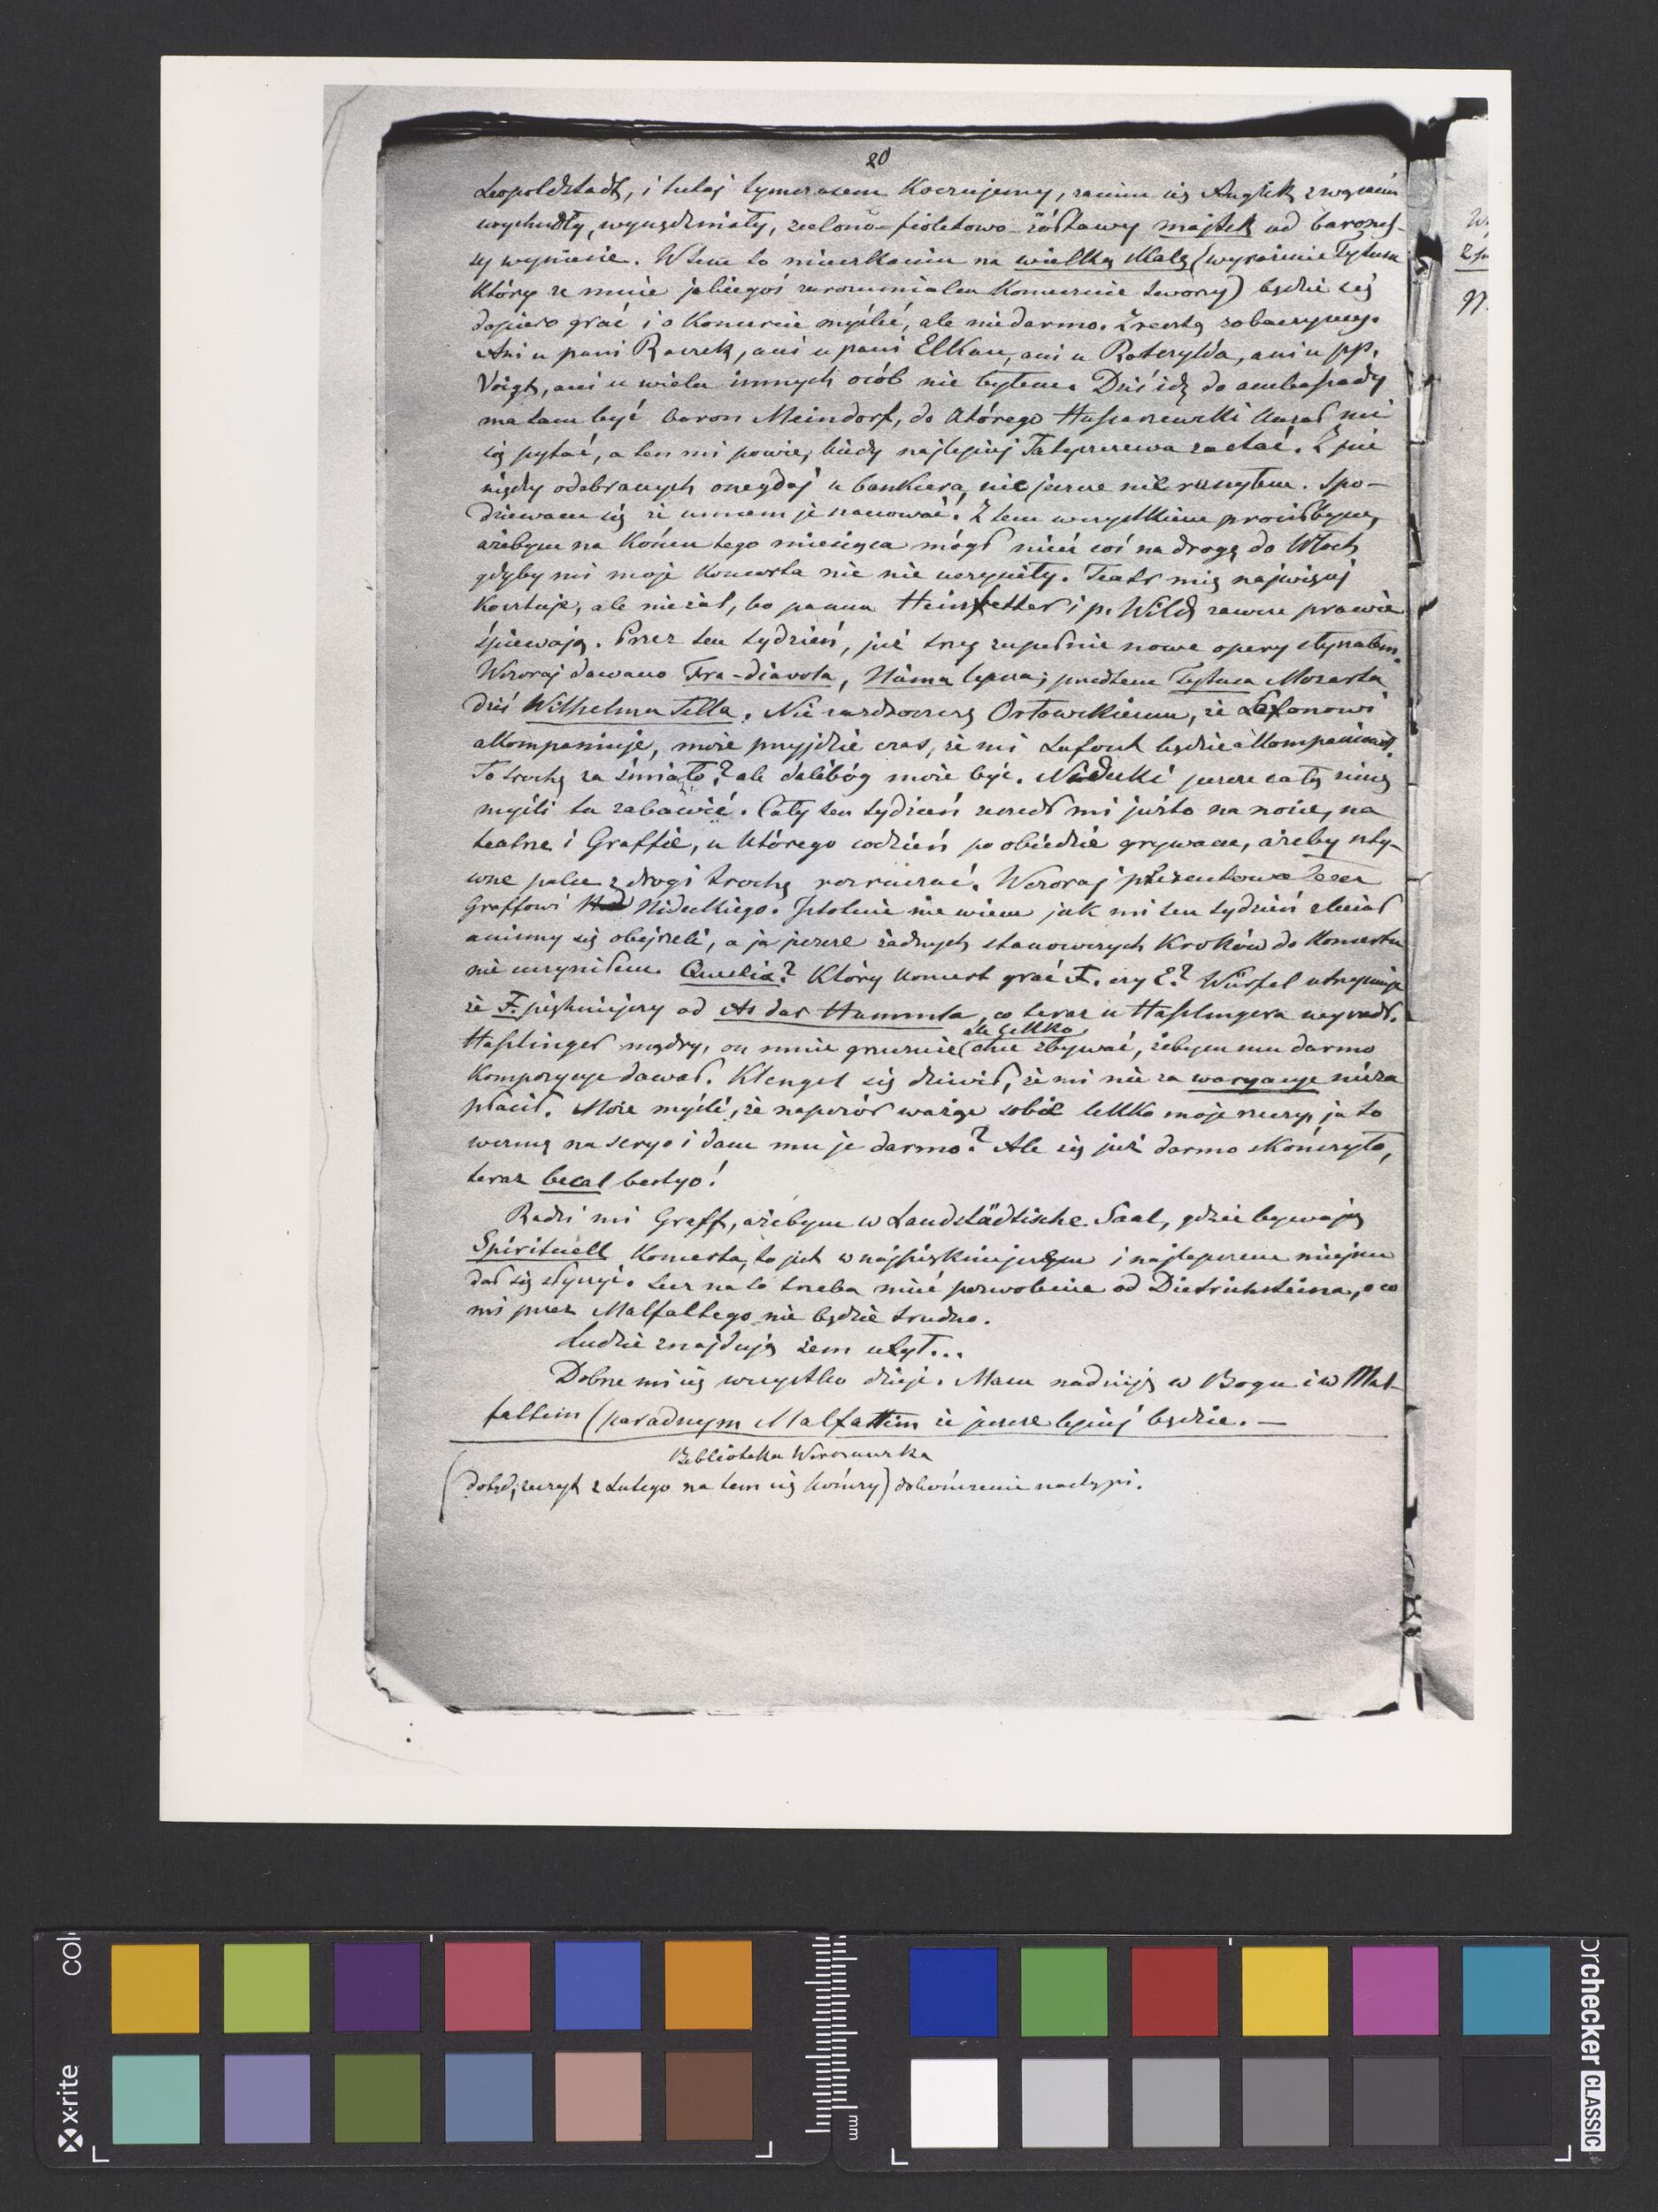 20
Leopoldstadt, i tutaj tymczasem koczujemy, zanim się Anglik z wąsami
wychudły, wynędzniały, zielono-fioletowo-żółtawy majtek od barones-
sy wyniesie. W tem to mieszkaniu na wielką skalę (wyrażenie Tytusa
który ze mnie jakiegoś zarozumialca koniecznie tworzy) będzie się
dopiero grać i o koncercie myśleć, ale niedarmo. Zresztą zobaczymy.
Ani u pani Raczek, ani u pani Elkan, ani u Rotszylda, ani u pp.
Voigt, ani u wielu innych osób nie byłem. Dziś idę do ambasady
ma tam być baron Meindorf, do którego Hussarzewski kazał mi
się pytać, a ten mi powie, kiedy najlepiej Tatyszczewa zastać. Z pie
niędzy odebranych onegdaj u bankiera, nic jeszcze nie ruszyłem. Spo-
dziewam się że umiem je szanować. Z tem wszystkiem prosiłbym,
ażebym na końcu tego miesiąca mógł mieć coś na drogę do Włoch
gdyby mi moje koncerta nic nie uczyniły. Teatr mię najwięcej
kosztuje, ale nie żal, bo panna Heinefetter i p. Wild zawsze prawie
śpiewają. Przez ten tydzień, już trzy zupełnie nowe opery słyszałem.
Wczoraj dawano Fra-diavola, Niema lepsza; przedtem Tytusa Mozarta
dziś Wilhelma Tella. Nie zazdroszczę Orłowskiemu, że Lafonowi
akompaniuje, może przyjdzie czas, że mi Lafont będzie akompaniował.
To trochę za śmiało? ale dalibóg może być. Nidecki jeszcze całą zimę
myśli tu zabawić. Cały ten tydzień zszedł mi jużto na nosie, na
teatrze i Graffie, u którego codzień po obiedzie grywam, ażeby szty-
wne palce z drogi trochę rozruszać. Wczoraj prezentowałem
Graffowi Nideckiego. Istotnie nie wiem jak mi ten tydzień zleciał
aniśmy się obejrzeli, a ja jeszcze żadnych stanowczych kroków do koncertu
nie uczyniłem. Questia? Który koncert grać F. czy E? Würfel utrzymuje
że F. piękniejszy od As dur Hummla, co teraz u Haslingera wyszedł.
Haslinger mądry, on mnie grzecznie (ale lekko) chce zbywać, żebym mu darmo
kompozycye dawał. Klengel się dziwił, że mi nie za waryacye nie za
płacił. Może myśli, że napozór ważąc sobie lekko moje rzeczy, ja to
wezmę na seryo i dam mu je darmo? Ale się już darmo skończyło,
teraz bezal bestyo!
Radzi mi Graff, ażebym w Landstädtische Saal, gdzie bywają
Spirituell koncerta, to jest w najpiękniejszem i najlepszem miejscu
dał się słyszyć. Lecz na to trzeba mieć pozwolenie od Dietrichsteina, o co
mi przez Malfattego nie będzie trudno.
Ludzie znajdują żem utył...
Dobrze mi się wszystko dzieje. Mam nadzieję w Bogu i w Mal-
fattim (paradnym Malfattim że jeszcze lepiej będzie. —
Biblioteka Warszawska
(dotąd; zeszyt z Lutego na tem się kończy) dokończenie nastąpi.